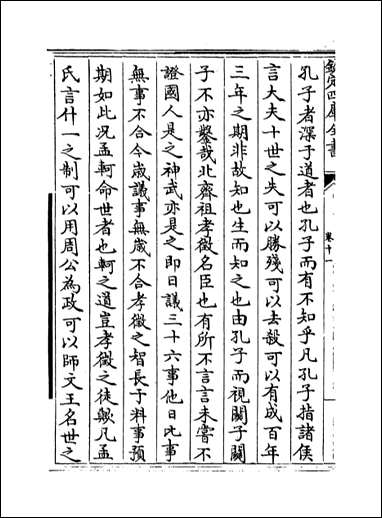 欽定四庫全書
卷十一
孔子者深于道者也孔子而有不知乎凡孔子指諸侯
言大夫十世之失可以勝殘可以去殺可以有成百年
三年之期非故知也生而知之也由孔子而視關子關
子不亦藝哉北齊祖孝徵名臣也有所不言言未嘗不
證國人是之神武亦是之即日議三十六事他日比事
無事不合今歲議事無歲不合孝徵之智長于料事預
期如此況孟軻命世者也軻之道豈孝徵之徒歟凡孟
氏言什一之制可以用周公為政可以師文王名世之